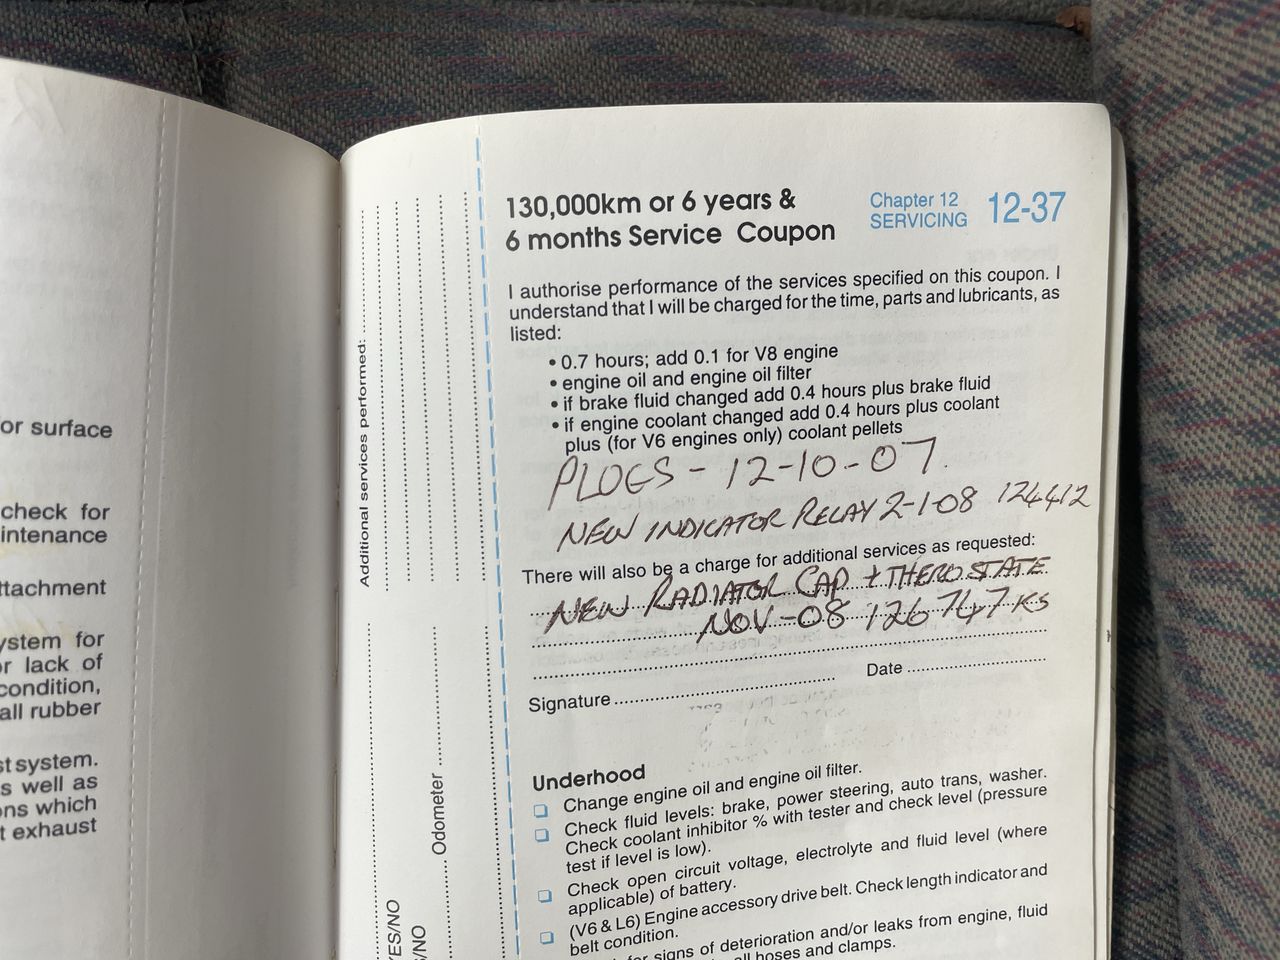 or surface
check for
intenance
ttachment
ystem for
or lack of
condition,
all rubber
st system.
s well as
ons which
t exhaust
Additional services performed:
Odometer
YES/NO
/NO
130,000km or 6 years &
6 months Service Coupon
Chapter 12
SERVICING
12-37
I authorise performance of the services specified on this coupon. I
understand that I will be charged for the time, parts and lubricants, as
listed:
• 0.7 hours; add 0.1 for V8 engine
• engine oil and engine oil filter
• if brake fluid changed add 0.4 hours plus brake fluid
• if engine coolant changed add 0.4 hours plus coolant
plus (for V6 engines only) coolant pellets
PLUGS - 12-10-07.
NEW INDICATOR RELAY 2-1-08 124412
There will also be a charge for additional services as requested:
NEW RADIATOR CAP + THEROSTATE
NOV-08 126747 KS
Signature
Date
Underhood
Change engine oil and engine oil filter.
Check fluid levels: brake, power steering, auto trans, washer.
Check coolant inhibitor % with tester and check level (pressure
test if level is low).
Check open circuit voltage, electrolyte and fluid level (where
applicable) of battery.
(V6 & L6) Engine accessory drive belt. Check length indicator and
belt condition.
for signs of deterioration and/or leaks from engine, fluid
all hoses and clamps.